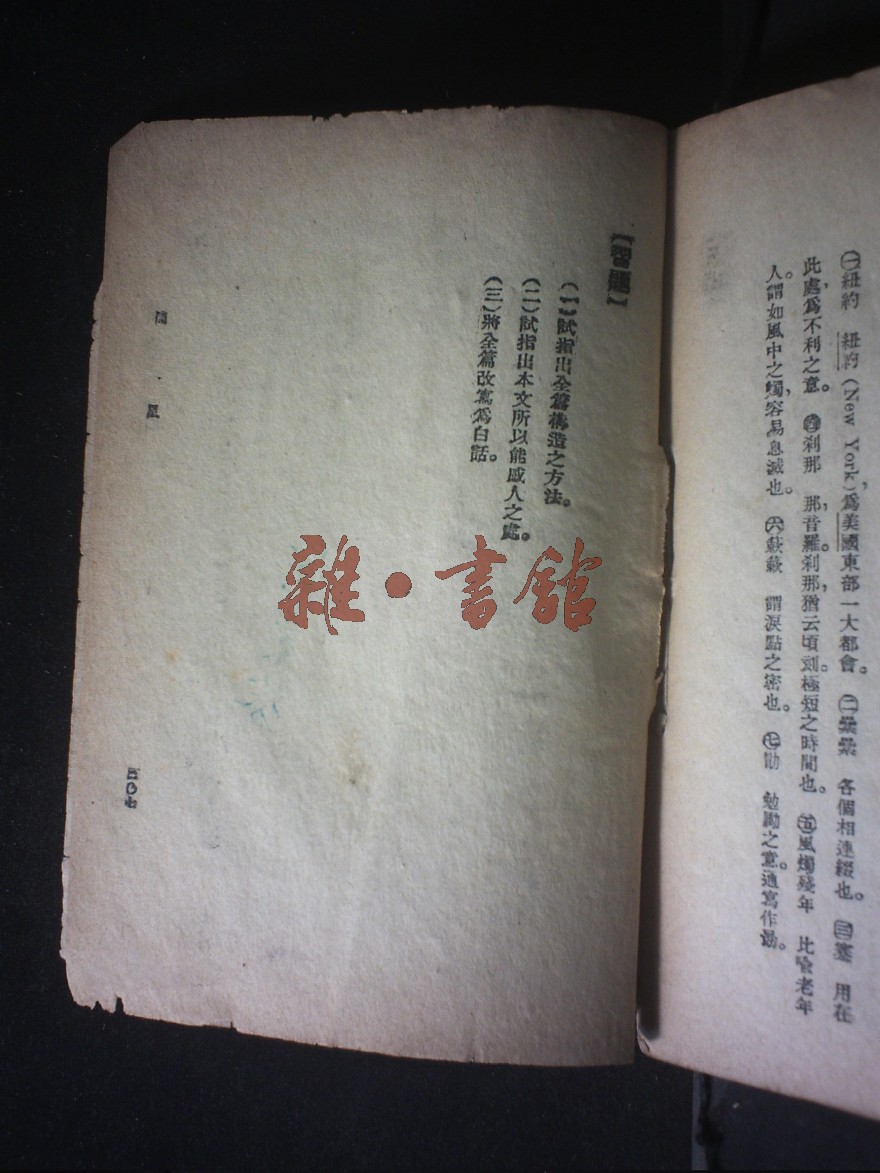 ㊀紐約　紐約(New York),爲美國東部一大都會。　㊁纍纍　各個相連綴也。　㊂蹇　用在
此處,爲不利之意。　㊃刹那　那,音羅。刹那,猶云頃刻。極短之時間也。　㊄風燭殘年　比喩老年
人。謂如風中之燭,容易息滅也。　㊅蔌蔌　謂淚點之密也。　㊆勖　勉勵之意。通寫作勗。
【習題】
(一)試指出全篇構造之方法。
(二)試指出本文所以能感人之處。
(三)將全篇改寫爲白話。
三〇七
雜·書館